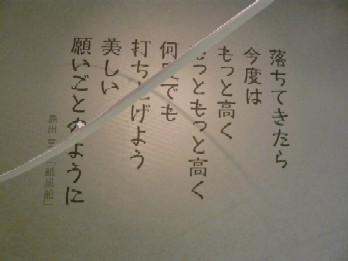 落ちてきたら
今度は
もっと高く
もっともっと高く
何度でも
打ち上げよう
美しい
願いごとのように
黒田三郎「紙風船」